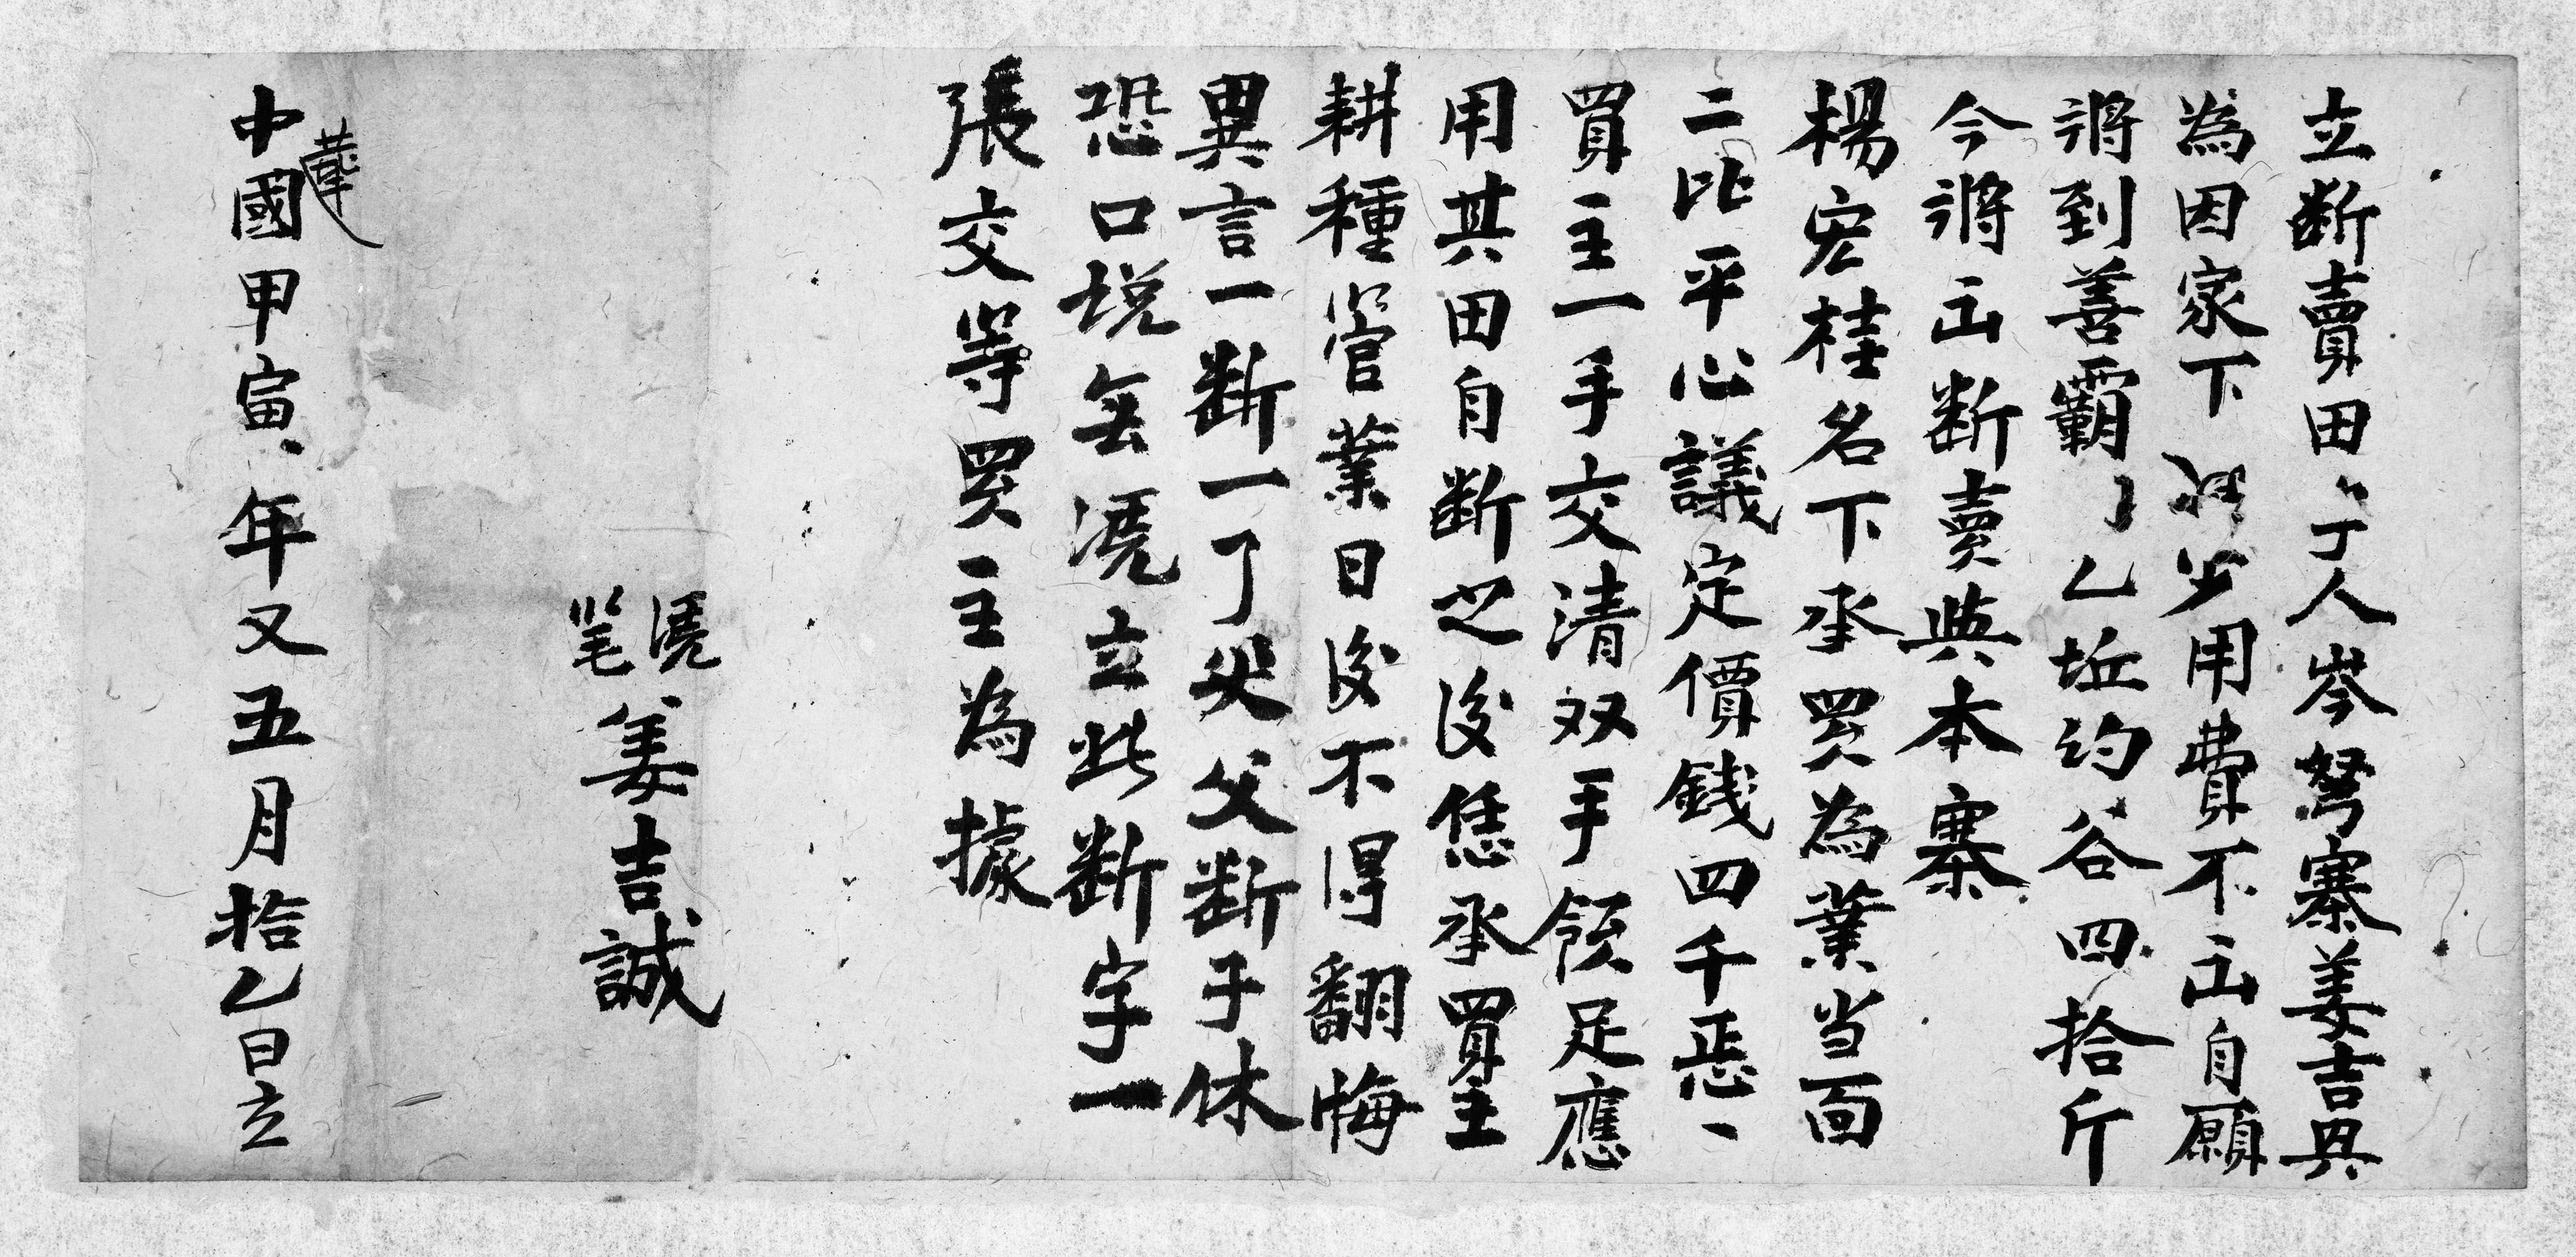 立断賣田丁人岑弩寨姜吉興
為因家下缺少用費不㐰自願
將到善霸乙坵約谷四拾斤
今將㐰断賣與本寨
楊宏桂名下承買為業当面
二比平心議定價錢四千
買主一手交清双手領足應
用其田自断之後恁承買主
耕種管業日後不得翻悔
異言一断一了父断子休
恐口説無凴立此断字一
張交等買主為據
凴
筆
姜吉誠
中華國甲寅年又五月拾乙日立